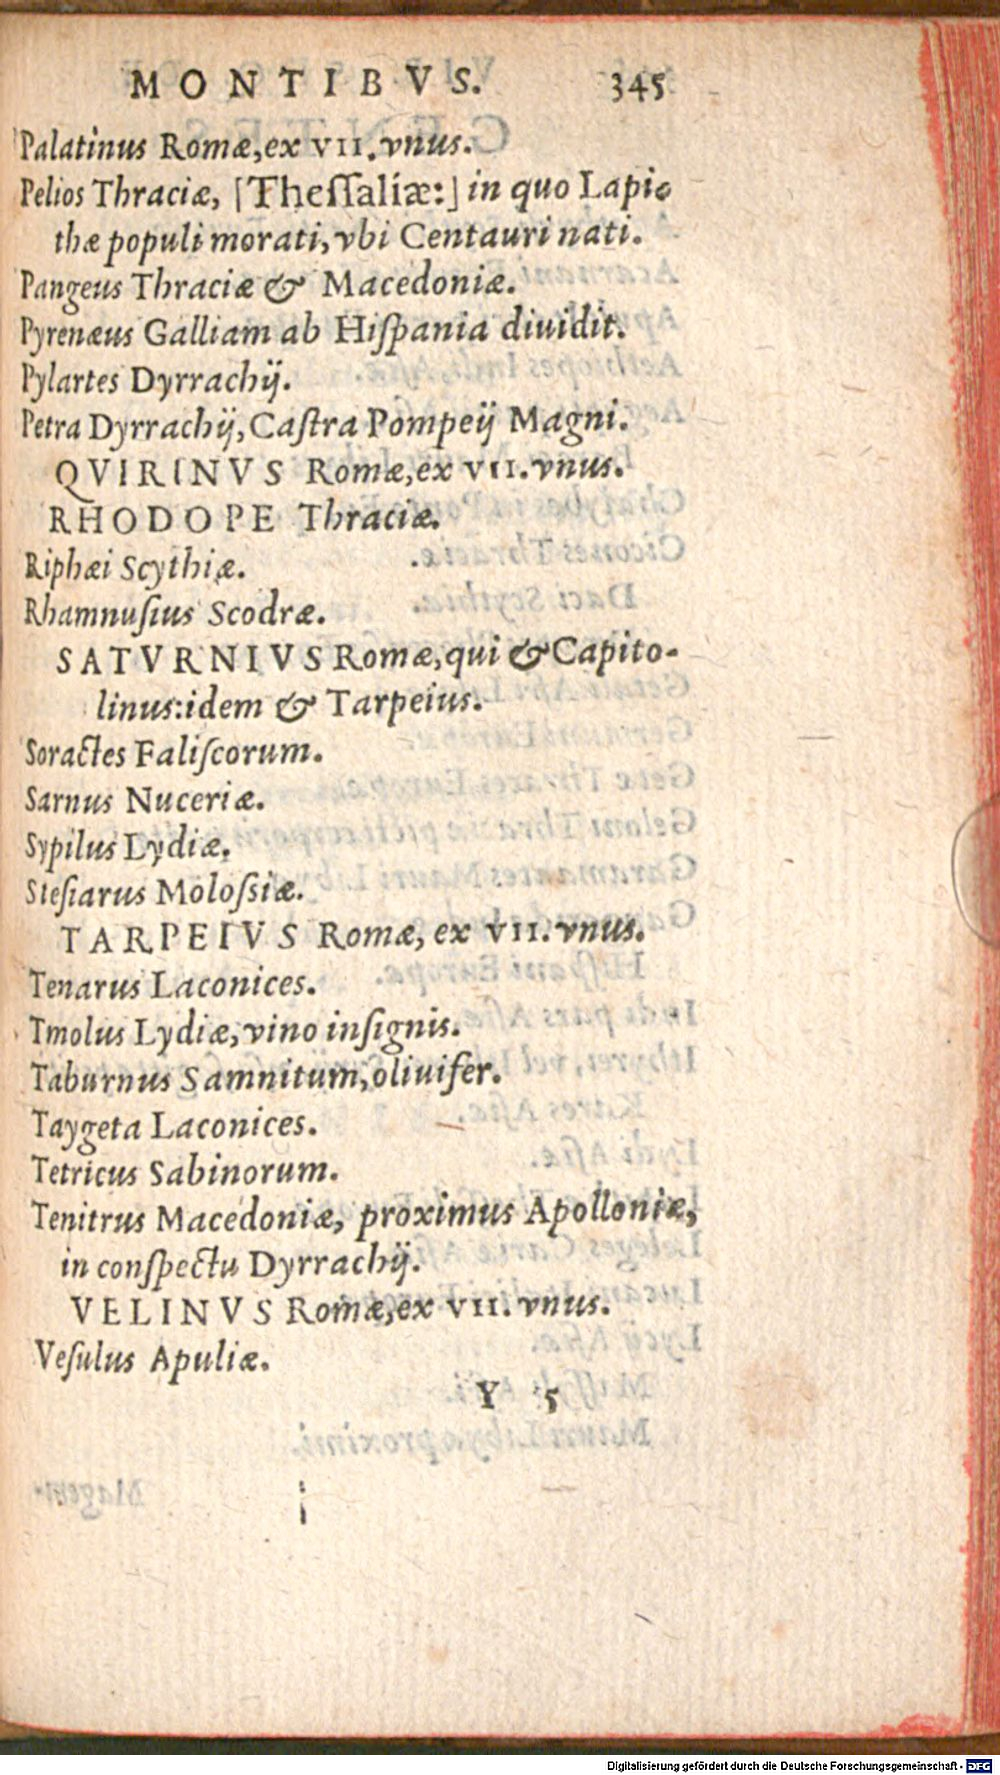 MONTIBVS. 345
Palatinus Romæ, ex VII. vnus.
Pelios Thraciæ, [Theſſaliæ:] in quo Lapi-
thæ populi morati, vbi Centauri nati.
Pangeus Thraciæ & Macedoniæ.
Pyrenæus Galliam ab Hiſpania diuidit.
Pylartes Dyrrachij.
Petra Dyrrachij, Caſtra Pompeij Magni.
QVIRINVS Romæ, ex VII. vnus.
RHODOPE Thraciæ.
Riphæi Scythiæ.
Rhamnuſius Scodræ.
SATVRNIVS Romæ, qui & Capito-
linus: idem & Tarpeius.
Soractes Faliſcorum.
Sarnus Nuceriæ.
Sypilus Lydiæ.
Steſiarus Moloſsiæ.
TARPEIVS Romæ, ex VII. vnus.
Tenarus Laconices.
Tmolus Lydiæ, vino inſignis.
Taburnus Samnitum, oliuifer.
Taygeta Laconices.
Tetricus Sabinorum.
Tenitrus Macedoniæ, proximus Apolloniæ,
in conſpectu Dyrrachij.
VELINVS Romæ, ex VII. vnus.
Veſulus Apuliæ.
Y 5
Digitalisierung gefördert durch die Deutsche Forschungsgemeinschaft - DFG